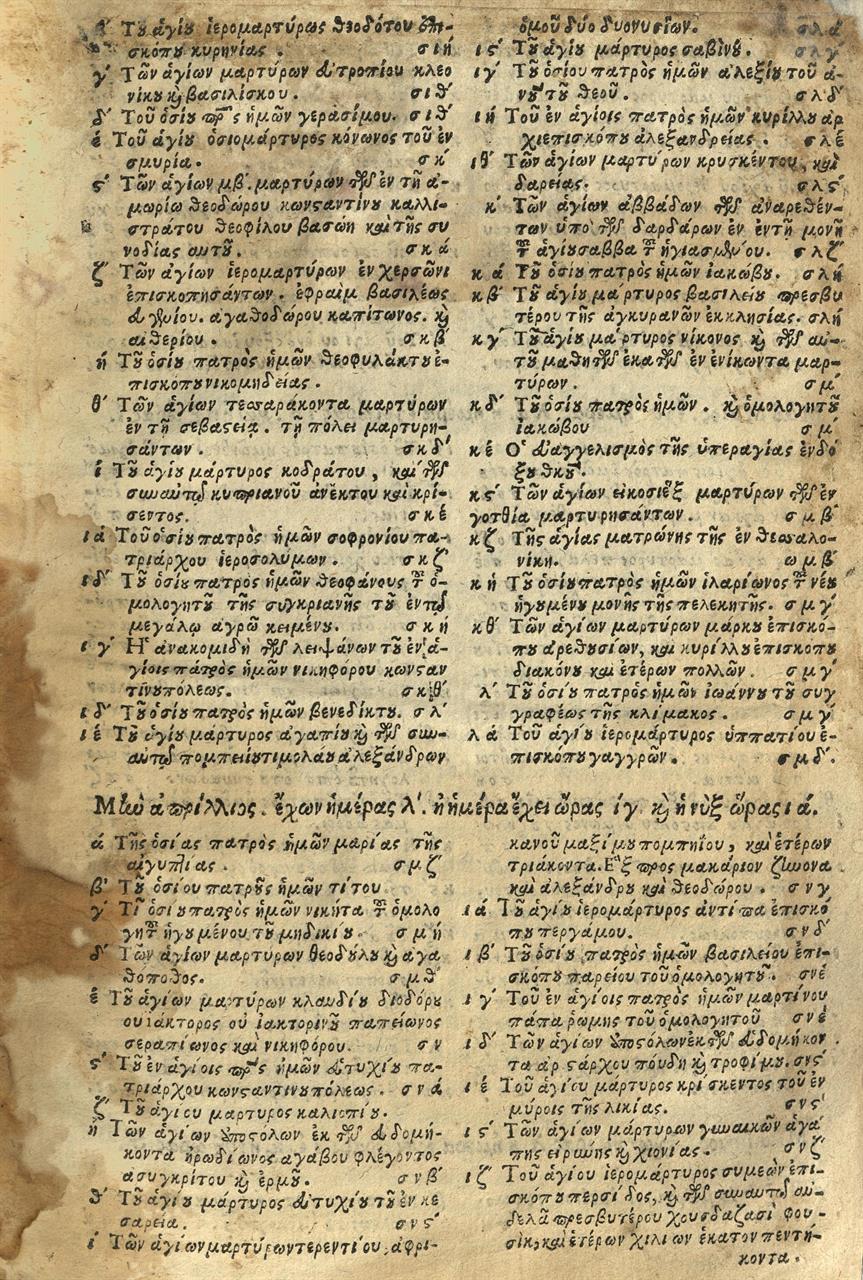 β' Τοῦ ἁγίου ἱερομαρτύρως θεοδότου ἐπι-
σκόπου κυρηνίας . σιή
γ' Τῶν ἁγίων μαρτύρων εὐτροπίου κλεο
νίκου καὶ βασιλίσκου . σιθ'
δ' Τοῦ ὁσίου πρς ἡμῶν γερασίμου. σιθ'
έ Τοῦ ἁγίου ὁσιομάρτυρος κόνωνος τοῦ ἐν
σμυρία. σκ'
ς' Τῶν ἁγίων μβ'. μαρτύρων τῶν ἐν τῇ ἀ-
μωρίω θεοδώρου κωνσαντίνου καλλι-
στράτου θεοφίλου βασώη καὶ τῆς συ
νοδίας αυτοῦ. σκά
ζ' Τῶν ἁγίων ἱερομαρτύρων ἐν χερσῶνι
ἐπισκοπησάντων . ἐφραὶμ βασιλέως
εὐγενίου. αγαθοδώρου καπίτωνος. καὶ
αιθερίου . σκβ'
ή Τοῦ ὁσίου πατρὸς ἡμῶν θεοφυλάκτου ἐ-
πισκόπου νικομηδείας .
θ' Τῶν ἁγίων τεσσαράκοντα μαρτύρων
ἐν τῇ σεβαστεία . τῇ πόλει μαρτυρη-
σάντων . σκδ'
ί Τοῦ ἁγίου μάρτυρος κοδράτου , καὶ τῶν
σὺν αυτῷ κυπριανοῦ ἀνέκτου καὶ κρί-
σεντος. σκέ
ιά Τοῦ ὁσίου πατρὸς ἡμῶν σοφρονίου πα-
τριάρχου ἱεροσολύμων . σκζ'
ιδ' Τοῦ ὁσίου πατρὸς ἡμῶν θεοφάνους τοῦ ὁ-
μολογητοῦ τῆς συγκριανῆς τοῦ ἐν τῷ
μεγάλω αγρῶ κειμένου. σκή
ιγ' Ἡ ἀνακομιδὴ τῶν λειψάνων τοῦ ἐν ἁ-
γίοις πατρὸς ἡμῶν νικηφόρου κωνσαν
τίνουπόλεως. σκθ'
ιδ' Τοῦ ὁσίου πατρὸς ἡμῶν βενεδίκτου. σλ'
ιέ Τοῦ ἁγίου μάρτυρος αγαπίου καὶ τῶν σὺν
αυτῷ πομπείου τιμολάου αλεξάνδρων
ὁμοῦ δύο δυονυσίων. σλά
ις' Τοῦ ἁγίου μάρτυρος σαβίνου. σλγ'
ιγ' Τοῦ ὁσίου πατρὸς ἡμῶν αλεξίου τοῦ ἀ-
νου τοῦ θεοῦ. σλδ'
ιή Τοῦ ἐν ἁγίοις πατρὸς ἡμῶν κυρίλλου αρ
χιεπισκόπου αλεξανδρείας . σλέ
ιθ' Τῶν ἁγίων μαρτύρων κρυσκέντου, καὶ
δαρείας. σλς'
κ' Τῶν ἁγίων ἀββάδων τῶν ἀναρεθέν-
των ὑπὸ τῶν δαρδάρων ἐν ἐντῇ μονῇ
τοῦ ἁγίου σαββα τοῦ ἡγιασμένου. σλζ'
κά Τοῦ ὁσίου πατρὸς ἡμῶν ἰακώβου. σλή
κβ' Τοῦ ἁγίου μάρτυρος βασιλείου πρεσβυ
τέρου τῆς ἀγκυρανῶν ἐκκλησίας. σλή
κγ' Τοῦ ἁγίου μάρτυρος νίκονος καὶ τῶν αυ-
τοῦ μαθητῶν ἑκατῶν ἐνενίκωντα μαρ-
τύρων . σμ'
κδ' Τοῦ ὁσίου πατρὸς ἡμῶν . καὶ ὁμολογητοῦ
ἰακώβου σμ'
κέ Ὁ εὐαγγελισμὸς τῆς ὑπεραγίας ἐνδό
ξου θκου.
κς' Τῶν ἁγίων εἰκοσιὲξ μαρτύρων τῶν ἐν
γοτθία μαρτυρησάντων . σμβ'
κζ' Τῆς ἁγίας ματρώνης τῆς ἐν θεσσαλο-
νίκη. ωμβ'
κή Τοῦ ὁσίου πατρὸς ἡμῶν ἱλαρίωνος τοῦ νέου
ἡγουμένου μονῆς τῆς πελεκητῆς. σμγ'
κθ' Τῶν ἁγίων μαρτύρων μάρκου ἐπισκό-
που αρεθυσίων, καὶ κυρίλλου ἐπισκόπου
διακόνου καὶ ἑτέρων πολλῶν . σμγ'
λ' Τοῦ ὁσίου πατρὸς ἡμῶν ἰωάννου τοῦ συγ
γραφέως τῆς κλίμακος . σμγ'
λά Τοῦ ἁγίου ἱερομάρτυρος ὑππατίου ἐ-
πισκόπου γαγγρῶν . σμδ'.
Μὴν ἀπρίλλιος. ἔχων ἡμέρας λ'. ἡ ἡμέρα ἔχει ὥρας ίγ καὶ ἡ νὺξ ὥρας ιά.
ά Τῆς ὁσίας πατρὸς ἡμῶν μαρίας τῆς
αἰγυπτίας . σμζ'
β' Τοῦ ὁσίου πατρὸς ἡμῶν τίτου
γ' Τοῦ ὁσίου πατρὸς ἡμῶν νικήτα τοῦ ὁμολο
γητοῦ ἡγουμένου τοῦ μηδικίου. σμή
δ' Τῶν ἁγίων μαρτύρων θεοδύλου καὶ αγα
θοποθος. σμθ'
έ Τοῦ ἁγίων μαρτύρων κλαυδίου διοδόρου
ουϊάκτορος οὐϊακτορινοῦ παπείωνος
σεραπίωνος καὶ νικηφόρου. σν
ς' Τοῦ ἐν ἁγίοις πρς ἡμῶν εὐτυχίου πα-
τριάρχου κωνσαντινουπόλεως . σνά
ζ' Τοῦ ἁγίου μάρτυρος καλιοπίου.
ή Τῶν ἁγίων ἀποστόλων ἐκ τῶν ἑβδομή-
κοντα ἡρωδίωνος αγάβου φλέγοντος
ασυγκρίτου καὶ ἑρμοῦ. σνβ'
θ' Τοῦ ἁγίου μάρτυρος εὐτυχίου τοῦ ἐν κε
σαρεία. σνς'
ί Τῶν ἁγίων μαρτύρων τερεντίου, ἀφρι-
κανοῦ μαξίμου πομπηΐου, καὶ ἑτέρων
τριάκοντα. Ἐξ πρὸς μακάριον ζήνωνα
καὶ αλεξάνδρου καὶ θεοδώρου . σνγ
ιά Τοῦ ἁγίου ἱερομάρτυρος ἀντίπα ἐπισκό
που περγάμου. σνδ'
ιβ' Τοῦ ὁσίου πατρὸς ἡμῶν βασιλείου ἐπι-
σκόπου παρείου τοῦ ὁμολογητοῦ. σνέ
ιγ' Τοῦ ἐν ἁγίοις πατρὸς ἡμῶν μαρτίνου
πάπα ῥώμης τοῦ ὁμολογητοῦ σνέ
ιδ' Τῶν ἁγίων ἀποστόλων ἐκ τῶν ἑβδομήκον .
τα αρςάρχου πούδη καὶ τροφίμου. σνς'
ιέ Τοῦ ἁγίου μάρτυρος κρίσκεντος τοῦ ἐν
μύροις τῆς λικίας. σνς'
ις' Τῶν ἁγίων μάρτυρων γυναικῶν ἀγά
πης εἰρώης καὶ χιονίας. σνζ'
ιζ' Τοῦ ἁγίου ἱερομάρτυρος συμεὼν ἐπι-
σκόπου περσίδος, καὶ τῶν σὺν αυτῷ αυ-
δελᾶ πρεσβυτέρου χουσδαζασὶ φου-
σὶκ, καὶ ἑτέρων χιλίων ἑκατον πεντή-
κοντα .